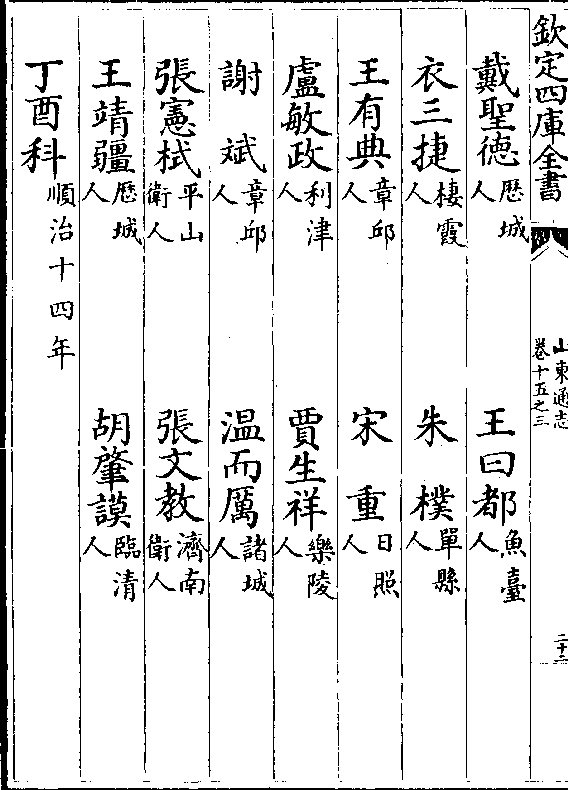 欽定四庫全書
山東通志
卷十五之三
二十二
戴聖德歷城人
王曰都魚臺人
衣三捷棲霞人
朱樸單縣人
王有典章邱人
宋重日照人
盧敏政利津人
賈生祥樂陵人
謝斌章邱人
温而厲諸城人
張憲栻平山衛人
張文教濟南衛人
王靖疆歷城人
胡肇謨臨清人
丁酉科順治十四年